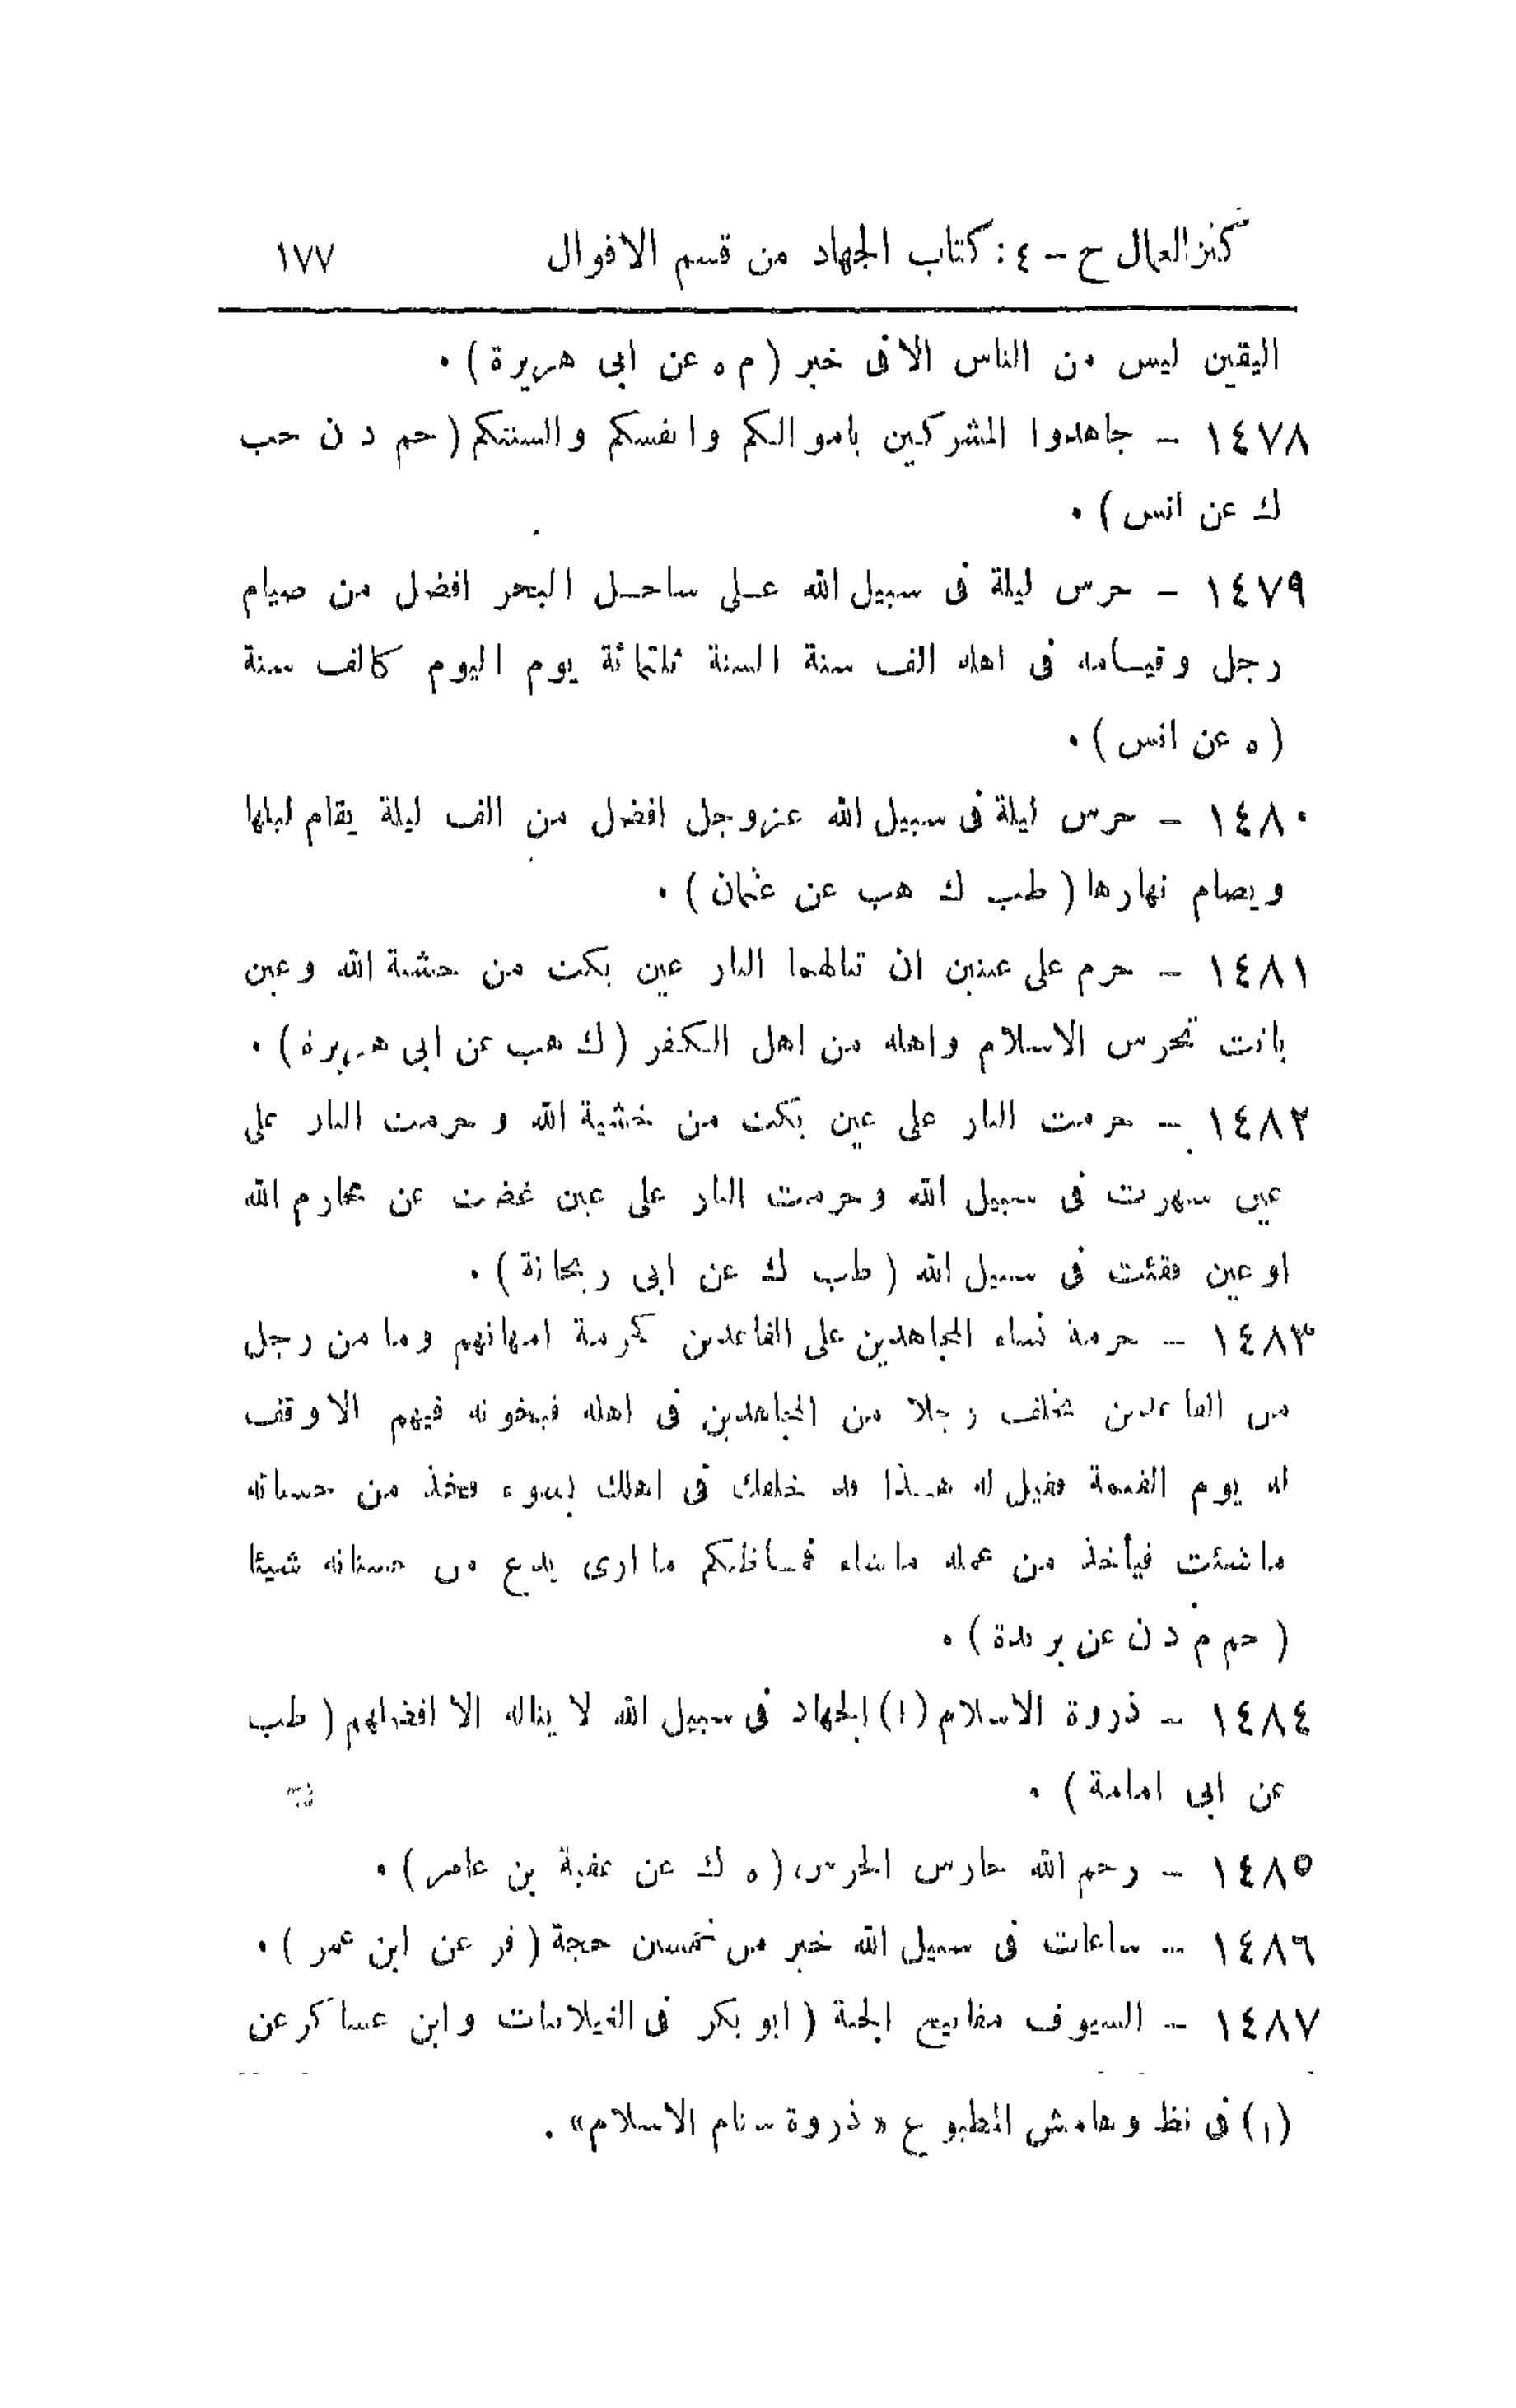 كنز العمال ج - ٤ : كتاب الجهاد من قسم الاقوال ١٧٧
اليقين ليس من الناس الا فى خير ( م ه عن ابى هريرة ) .
١٤٧٨ - جاهدوا المشركين باموالكم وانفسكم والسنتكم ( حم د ن حب
ك عن انس ) .
١٤٧٩ - حرس ليلة فى سبيل الله على ساحل البحر افضل من صيام
رجل وقيامه فى اهله الف سنة السنة ثلثمائة يوم اليوم كالف سنة
( ه عن انس ) .
١٤٨٠ - حرس ليلة فى سبيل الله عزوجل افضل من الف ليلة يقام ليلها
ويصام نهارها ( طب ك هب عن عثمان ) .
١٤٨١ - حرم على عينين ان تنالهما النار عين بكت من خشية الله وعين
باتت تحرس الاسلام واهله من اهل الكفر ( ك هب عن ابى هريرة ) .
١٤٨٢ - حرمت النار على عين بكت من خشية الله وحرمت النار على
عين سهرت فى سبيل الله وحرمت النار على عين غضت عن محارم الله
او عين فقئت فى سبيل الله ( طب ك عن ابى ريحانة ) .
١٤٨٣ - حرمة نساء المجاهدين على القاعدين كحرمة امهاتهم وما من رجل
من القاعدين يخلف رجلا من المجاهدين فى اهله فيخونه فيهم الا وقف
له يوم القيمة فقيل له هذا قد خلفك فى اهلك بسوء فخذ من حسناته
ما شئت فيأخذ من عمله ماشاء فما ظنكم ما ارى يدع من حسناته شيئا
( حم م د ن عن بريدة ) .
١٤٨٤ - ذروة الاسلام (١) الجهاد فى سبيل الله لا يناله الا افضلهم ( طب
عن ابى امامة ) .
١٤٨٥ - رحم الله حارس الحرس ( ه ك عن عقبة بن عامر ) .
١٤٨٦ - ساعات فى سبيل الله خير من خمسين حجة ( فر عن ابن عمر ) .
١٤٨٧ - السيوف مفاتيح الجنة ( ابو بكر فى الغيلانيات وابن عساكر عن
(١) فى نظ وهامش المطبوع « ذروة سنام الاسلام» .